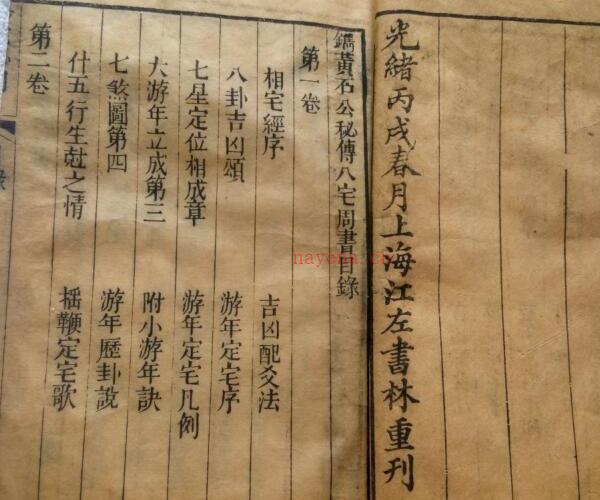 光緒丙戌春月上海江左書林重刊
鐫黃石公秘傳八宅周書目錄
第一卷
相宅經序 吉凶配爻法
八卦吉凶頌 游年定宅序
七星定位相成章 游年定宅凡例
大游年立成第三 附小游年訣
七煞圖第四 游年歷卦說
什五行生尅之情 揺鞭定宅歌
第二卷